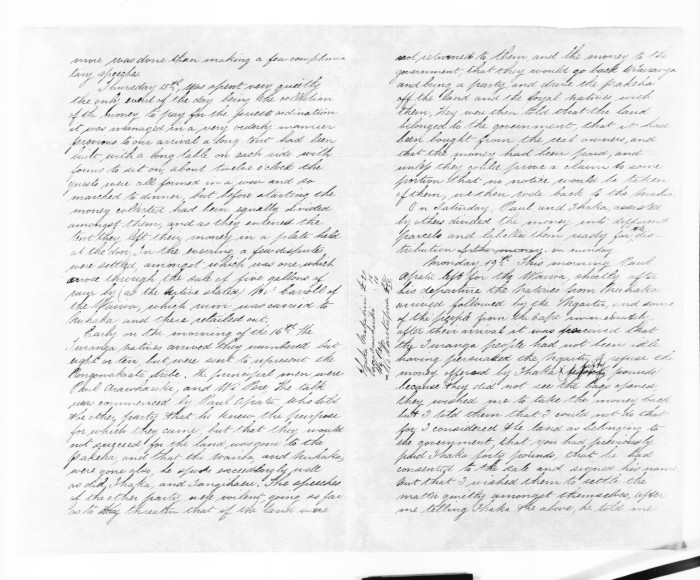 more was done than making a few complimen
tary speeches
Thursday 15th, was spent very quietly
the only event of the day being the collection
of the money to pay for the priests ordination
it was managed in a very orderly manner
previous to our arrival a long tent had been
built with a long table on each side with
forms to sit on, about twelve o'clock the
guests were all formed in a row and so
marched to dinner, but before starting the
money collected had been equally divided
amongst them, and as they entered the
tent they left their money in a plate held
at the door. In the evening a few disputes
were settled, amongst which was one which
arose through the sale of five gallons of
rum by (as the native stated) Mr Carroll of
the Wairoa, which rum was carried to
Nuhaka and there retailed out.
Early in the morning of the 16th the
Turanga natives arrived they numbered but
eight or ten but were sent to represent the
Rongowakata tribe. The principal men were
Paul and Wi Pere The talk
was commenced by Paul Apatu who told
the other party that he knew the purpose
for which they came, but that they would
not succeed for the land was gone to the
pakeha, and that the Wairoa and Nuhaka
were gone also, he spoke exceedingly well
as did, Ihaka, and The speeches
of the other party were violent going so far
as to threaten that if the land were
not returned to them, and the money to the
government, that they would go back to Turanga
and bring a party, and drive the pakeha
off the land and the loyal natives with
them, they were then told that the land
belonged to the government, that it had
been bought from the real owners, and
that the money had been paid, and
unless they could prove a claim to some
portion that no notice would be taken
of them, we then rode back to the Nuhaka.
On Saturday Paul and Ihaka, assisted
by others divided the money into different
parcels and labelled them ready for dis
tribution of the money, on monday
Monday 19th This morning Paul
Apatu left for the Wairoa, shortly after
his departure the natives from Nuhaka
arrived followed by the and some
of the people from the Cape immediately
after their arrival it was perceived that
the Turanga people had not been idle
having persuaded the to refuse the
money offered by Ihaka pounds
because they did not see the bags opened
they wished me to take the money back
but I told them that I could not do that
for I considered the land as belonging to
the government, that you had previously
paid Ihaka forty pounds, that he had
consented to the sale and signed his name
but that I wished them to settle the
matter quietly amongst themselves, after
me telling Ihaka the above, he told me